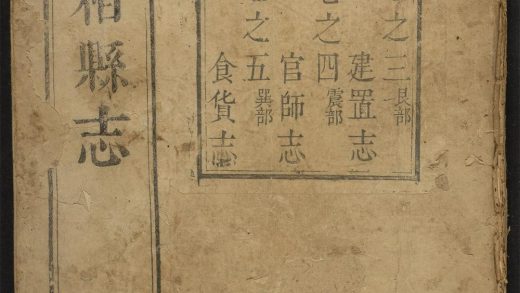 縣志
之三 艮部
建置志
之四 震部
官師志
之五 巽部
食貨志